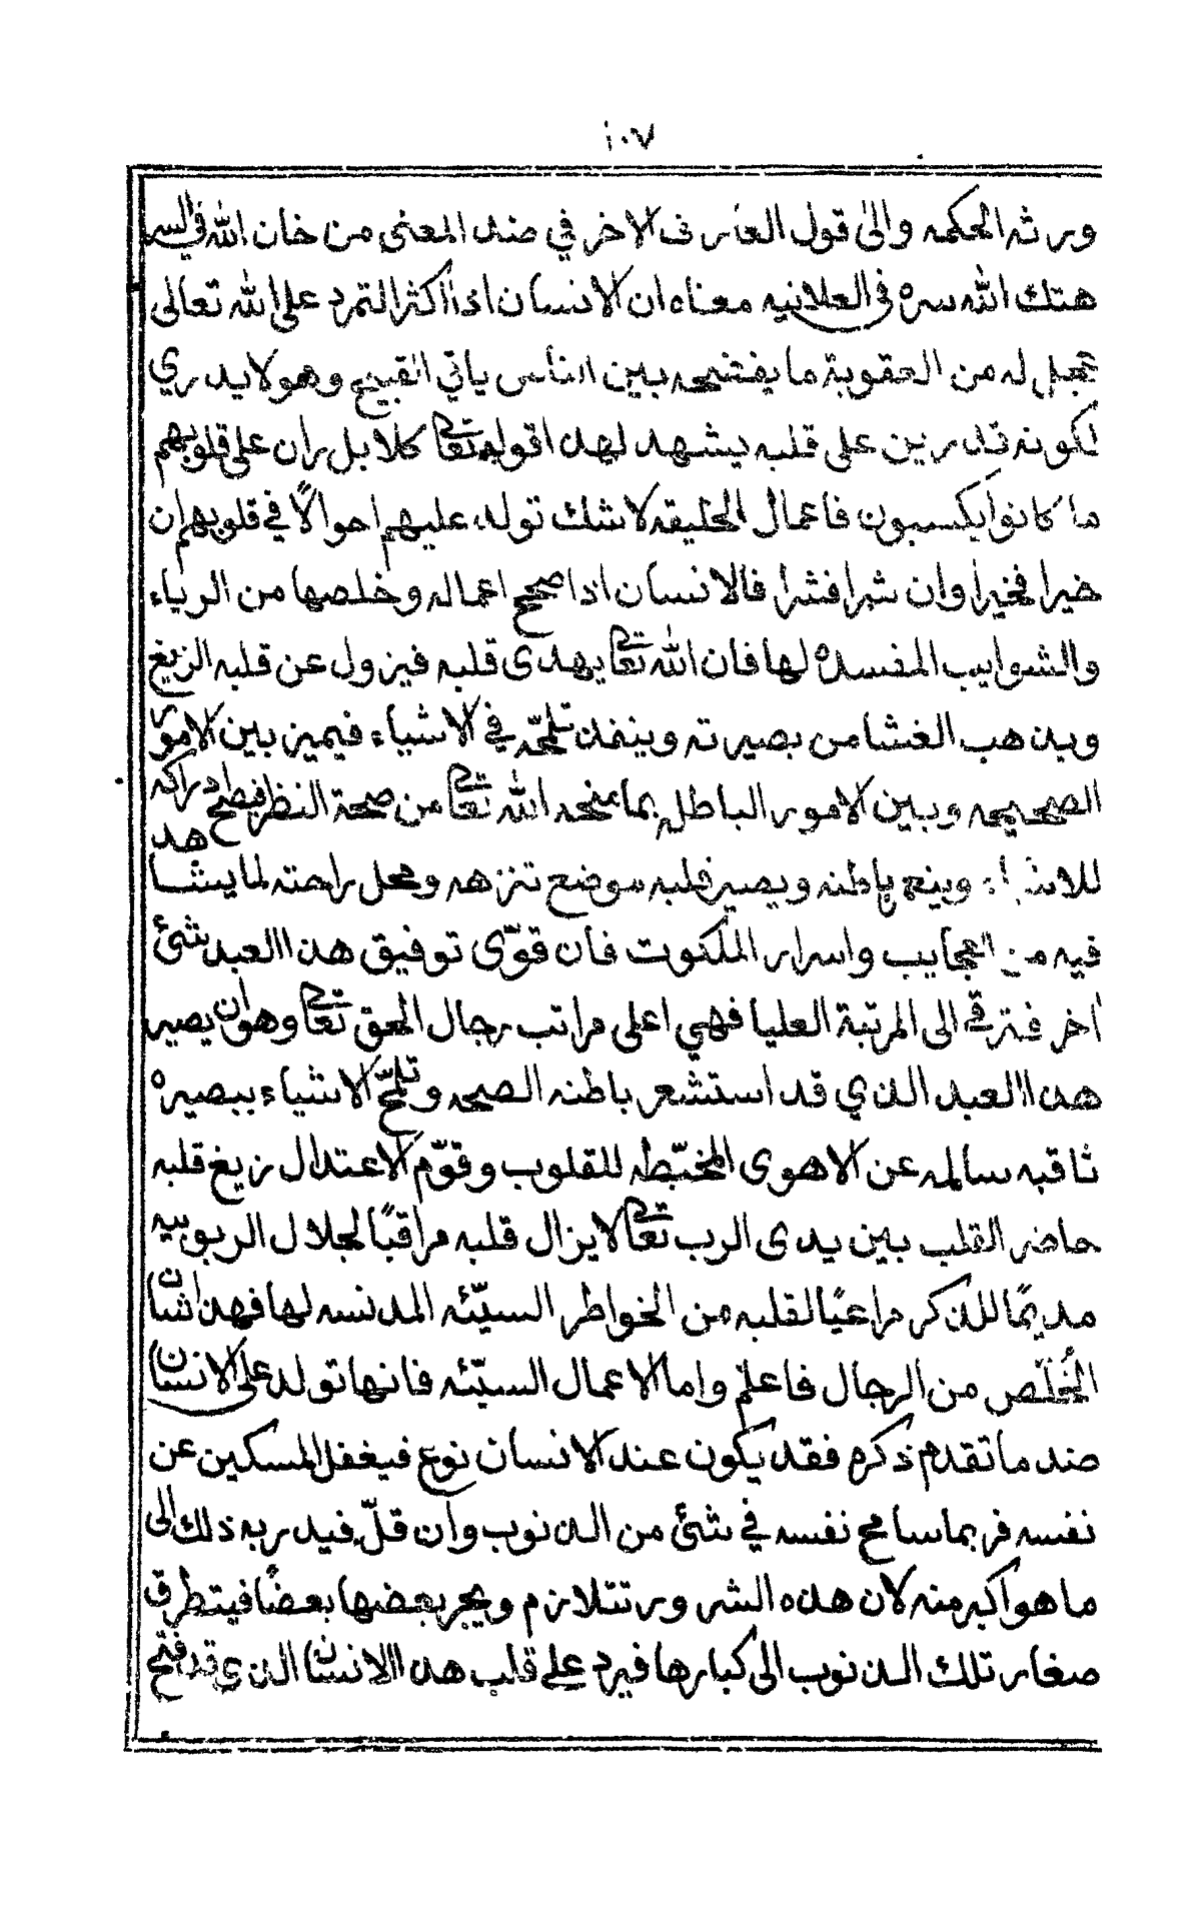 ١٠٧
ورثه الحكمه والى قول العارف الاخر في ضد المعنى من خان الله في السر
هتك الله سره في العلانيه معناه ان الانسان اذا اكثر التمرد على الله تعالى
عجل له من العقوبة ما يفتضحه بين الناس ياتي القبيح وهو لا يدري
لكونه قد رين على قلبه يشهد لهذا قوله تعا كلا بل ران على قلوبهم
ما كانوا يكسبون فاعمال الخليقه لا شك تولد عليهم احوالًا في قلوبهم ان
خيرا فخيرا وان شرا فشرا فالانسان اذا صحح اعماله وخلصها من الرياء
والشوايب المفسده لها فان الله تعا يهدى قلبه فيزول عن قلبه الزيغ
ويذهب الغشا من بصيرته وينفذ تلمحّه في الاشياء فيميز بين الامور
الصحيحه وبين الامور الباطله بما يمنحه الله تعا من صحة النظر فيصح ادراكه
للاشياء وينعم باطنه ويصير قلبه موضع تنزهه ومحل راحته لما يشاهد
فيه من العجايب واسرار الملكوت فان قوّى توفيق هذا العبد شئ
اخر فترقى الى المرتبة العليا فهي اعلى مراتب رجال الحق تعا وهو ان يصير
هذا العبد الذي قد استشعر باطنه الصحه وتلمّح الاشياء ببصيره
ثاقبه سالمه عن الاهوى المخبّطه للقلوب وقوّم الاعتدال زيغ قلبه
حاضر القلب بين يدى الرب تعا لا يزال قلبه مراقبًا لجلال الربوبيه
مديمًا للذكر مراعيًا لقلبه من الخواطر السيّئه المدنسه لها فهذا شان
المُخلّص من الرجال فاعلم واما الاعمال السيّئه فانها تولد على الانسان
ضد ما تقدم ذكره فقد يكون عند الانسان نوع فيغفل المسكين عن
نفسه فربما سامح نفسه في شئ من الذنوب وان قلّ فيدربه ذلك الى
ما هو اكبر منه لان هذه الشرور تتلازم ويجر بعضها بعضًا فيتطرق
صغار تلك الذنوب الى كبارها فيرد على قلب هذا الانسان الذي قد افتح